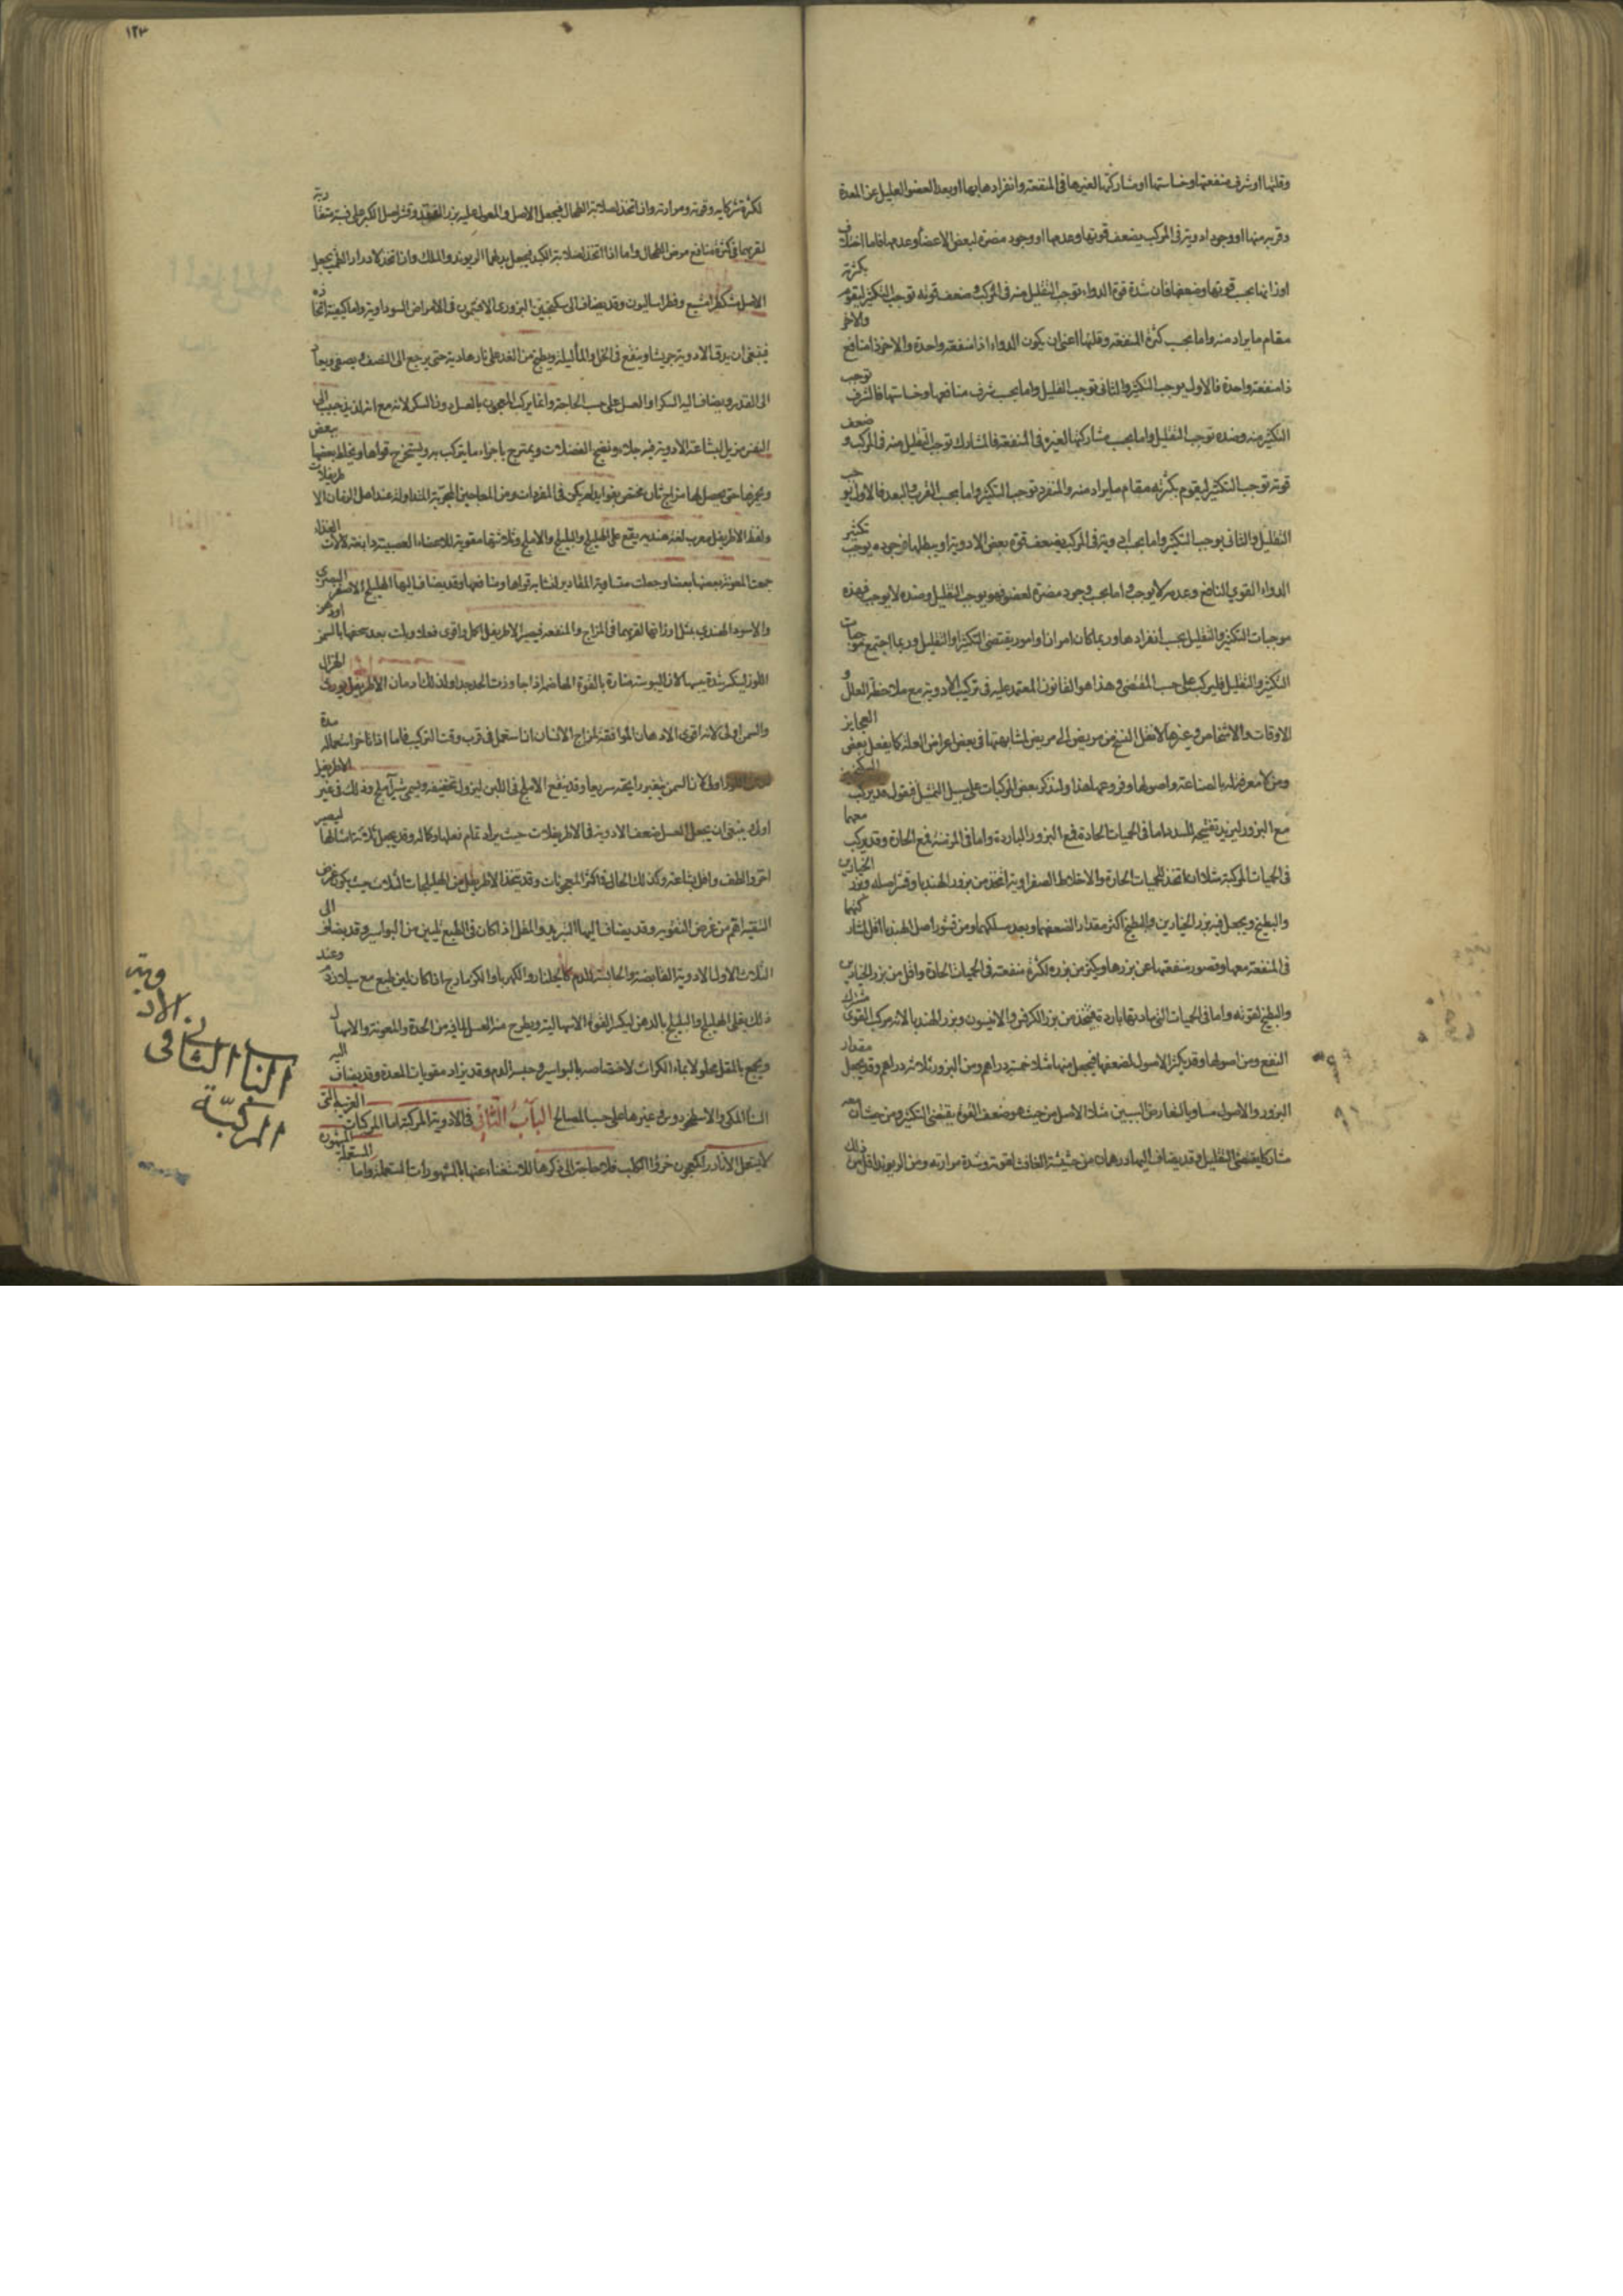 وقلتها او شرف منفعتها وخساستها او مشاركتها لغيرها في المنفعة وانفرادها بها او بعد العضو العليل عن المعدة
وقربه منها او وجود ادوية في المركب يضعف قوتها وعدمها او وجود مضرة لبعض الاعضاء وعدمها فاما اختلاف
اوزانها بحسب قوتها وضعفها فان شدة قوة الدواء توجب التقليل منه في المركب وضعف قوته توجب التكثير ليقوم بكثرته
مقام ما يراد منه واما بحسب كثرة المنفعة وقلتها اعني ان يكون الدواء اذا منفعة واحدة والاخر ذا منافع والاخر
ذا منفعة واحدة فالاول يوجب التكثير والثاني توجب التقليل واما بحسب شرف منافعها وخساستها فالشرف توجب
التكثير منه وضده توجب التقليل واما بحسب مشاركتها لغيره في المنفعة فالمشارك توجب التقليل منه في المركب و ضعف
قوته توجب التكثير ليقوم بكثرته مقام ما يراد منه والمنفرد توجب التكثير واما بحسب القرب والبعد فالاول يوجب
التقليل والثاني يوجب التكثير واما بحسب ادوية في المركب يضعف قوة بعض الادوية او يبطلها فوجوده يوجب تكثير
الدواء القوي النافع وعدمه لا يوجب واما بحسب وجود مضرة لعضو فهو يوجب التقليل وضده لا يوجب فهذه
موجبات التكثير والتقليل بحسب انفرادها وربما كان امران او امور يقتضي التكثير او التقليل وربما اجتمع موجبات
التكثير والتقليل فليركب على حسب المقتضى وهذا هو القانون المعتمد عليه في تركيب الادوية مع ملاحظة العلل و
الاوقات والاشخاص وغيرها لا نقل النسخ من مريض الى مريض لمشابهتها في بعض اعراض العلة كما يفعل بعض العجايز
ومن لا معرفة له بالصناعة واصولها وفروعها هذا ولنذكر بعض المركبات على سبيل التمثيل فنقول قد يركب السكنجبين
مع البزور ليزيد تفتيحه للسدد اما في الحميات الحادة فمع البزور الباردة واما في المزمنة فمع الحارة وقد يركب معهما
في الحميات المركبة مثلا ان ما تتخذ للحميات الحارة والاخلاط الصفراوية اتخذ من بزور الهندبا وقشر اصله وبزر الخيارين
والبطيخ ويجعل فيه بزر الخيارين والبطيخ اكثر مقدارا لضعفهما وبعد مسلكهما ومن قشور اصل الهندبا اقل لمشاركتهما
في المنفعة معهما وقصور منفعتها عن بزرها ويكثر من بزره لكثرة منفعته في الحميات الحارة واقل من بزر الخيارين
والبطيخ لقوته واما في الحميات التي مادتها باردة فيتخذ من بزر الكرفس والانيسون وبزر الهندبا لانه مركب القوى مشترك
النفع ومن اصولها وقد يكثر الاصول لضعفها فيجعل منها مثلا خمسة دراهم ومن البزور ثلاثة دراهم وقد يجعل مقدار
البزور والاصول مساويا لتعارض السببين مثلا الاصل من حيث هو ضعف القوة يقتضي التكثير ومن حيث ان معه
مشاركا يقتضي التقليل وقد يضاف اليها درهمان من حشيشة الغافث لقوته وشدة مرارته ومن الريوند اقل من ذلك
١٢٣
لكثرة مشاركاته وقوته ومرارته وان اتخذ لصلابة الطحال فيجعل الاصل والمعول عليه بزر الفقد وقشر اصل الكبر على نسبة متقاربة
لقربهما في كثرة منافع مرض الطحال واما اذا اتخذ لصلابة الكبد فيجعل بدلهما الريوند والملك وان اتخذ لادرار الطمث يجعل
الاصل مشكطرامشيع وفطراساليون وقد يضاف الى سكنجبين البزوري الافتيمون في الامراض السوداوية واما كيفية اتخاذه
فينبغي ان يدق الادوية جريشا وينقع في الخل والماء ليلة ويطبخ من الغد على نار هادية حتى يرجع الى النصف ويصفى ويعاد
الى القدر ويضاف اليه السكر او العسل على حسب الحاجة وانما يركب المعجون بالعسل دون السكر لانه مع انه لذيذ حبيب الى
النفس مزيل لبشاعة الادوية فيه جلاء ونضج الفضلات ويمتزج باجزاء ما يتركب به ويستخرج قواها ويخلط بعضها ببعض
ويخمرها حتى يحصل لها مزاج ثان مختص بفوائد لم يكن في المفردات ومن المعاجين المجربة المتداولة عند اهل الزمان الاطريفلات
ولفظ الاطريفل معرب لغة هندية يقع على الهليلج والبليلج والاملج وثلاثتها مقوية للاعضاء العصبية دابغة لالات الغذاء
جمعت المعونة بعضها بعضا وجعلت متساوية المقادير لتشابه قواها ومنافعها وقد يضاف اليها الهليلج الاصفر
والاسود الهندي بمثل اوزانها لقربهما في المزاج والمنفعة فيصير الاطريفل اكمل واقوى فعلا ويلت بعد سحقها بالسمن او دهن
اللوز لينكسر شدة يبسها لان اليبوسة مضارة بالقوة الهاضمة اذا جاوزت الحد جدا ولذلك ادمان الاطريفل يورث الهزال
والسمن اولى لانه اقوى الادهان الموافقة لمزاج الانسان ان استعمل في قرب وقت التركيب فاما اذا تاخر استعماله مدة
اولى لان السمن يتغير رايحته سريعا وقد ينقع الاملج في اللبن ليزول تخفيفه ويسمى شير آملج وذلك في غير الاطريفل
اولى ينبغي ان يجعل العسل ضعف الادوية في الاطريفلات حيث يراد تمام فعلها وكماله وقد يجعل ثلاثة امثالها ليصير
اخمر والطف واقل بشاعة وكذلك الحال في اكثر المعجونات وقد يتخذ الاطريفل من الهليلجات الثلاث حيث يكون غرض
التنقية اهم من غرض التقوية وقد يضاف اليها التربد والمقل اذا كان في الطبع تليين من البواسير وقد يضاف الى
الثلاث الاول الادوية القابضة والحابسة للدم كالجلنار والكهربا والكزمازج اذا كان لين طبع مع سيلان دم وعند
ذلك يقلى الهليلج والبليلج بالدهن ليكسر القوة الاسهالية ويطرح منه العسل لما فيه من الحدة والمعونة والاسهال
ويجمع بالمقل محلولا بماء الكراث لاختصاصه بالبواسير وحبس الدم وقد يزاد مقويات المعدة وقد يضاف اليه
السنا المكي والاسطوخودوس وغيرها على حسب المصالح الباب الثاني في الادوية المركبة اما المركبات الغريبة التي
لا يستعمل الا نادرا كمعجون خرؤ الكلب فلا حاجة الى ذكرها للاستغناء عنها بالمشهورات المستعملة واما المشهورة المستعملة
الباب الثاني في الادوية
المركبّة